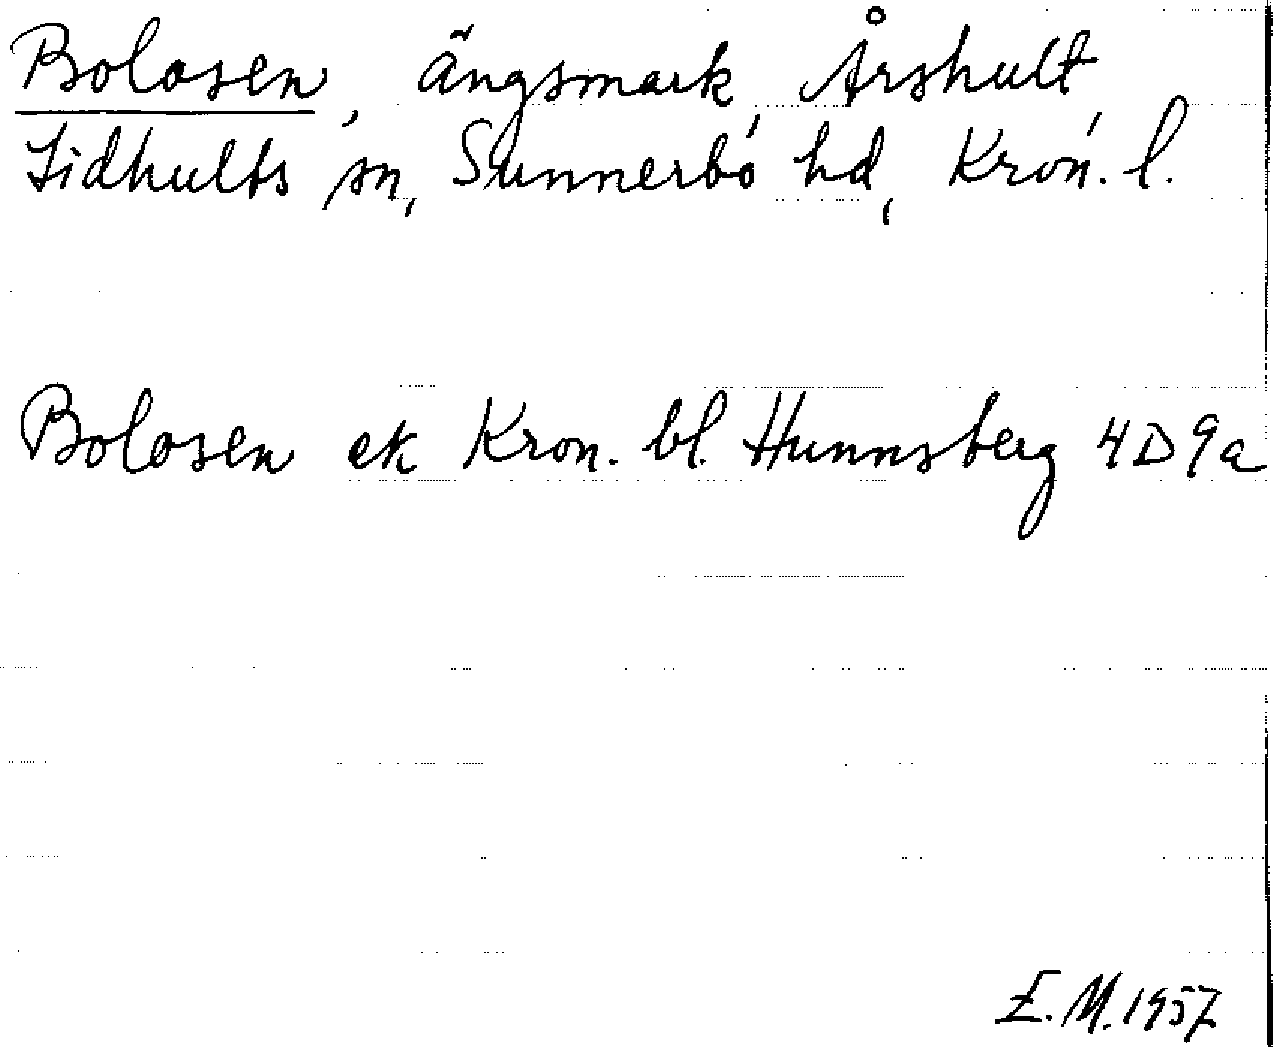 Bolosen, ängsmark, Årshult,
Lidhults sn, Sunnerbo hd, Kron. l.
Bolosen ek Kron. bl. Hunnsberg 4D9a
E.M. 1957